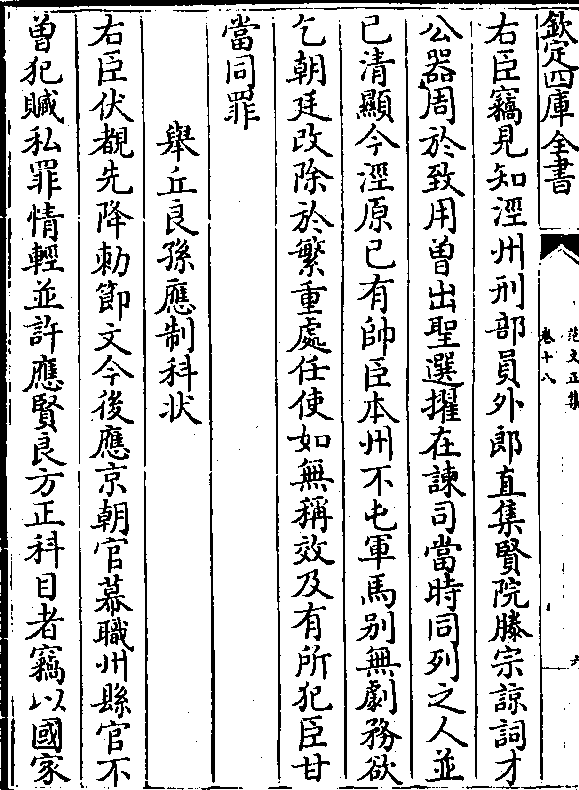 欽定四庫全書
范文正集
卷十八
六
右臣竊見知涇州刑部員外郎直集賢院滕宗諒詞才
公器周於致用曽出聖選擢在諫司當時同列之人並
已清顯今涇原已有帥臣本州不屯軍馬别無劇務欲
乞朝廷改除於繁重處任使如無稱效及有所犯臣甘
當同罪
舉丘良孫應制科状
右臣伏覩先降勅節文今後應京朝官幕職州縣官不
曽犯贓私罪情輕並許應賢良方正科目者竊以國家